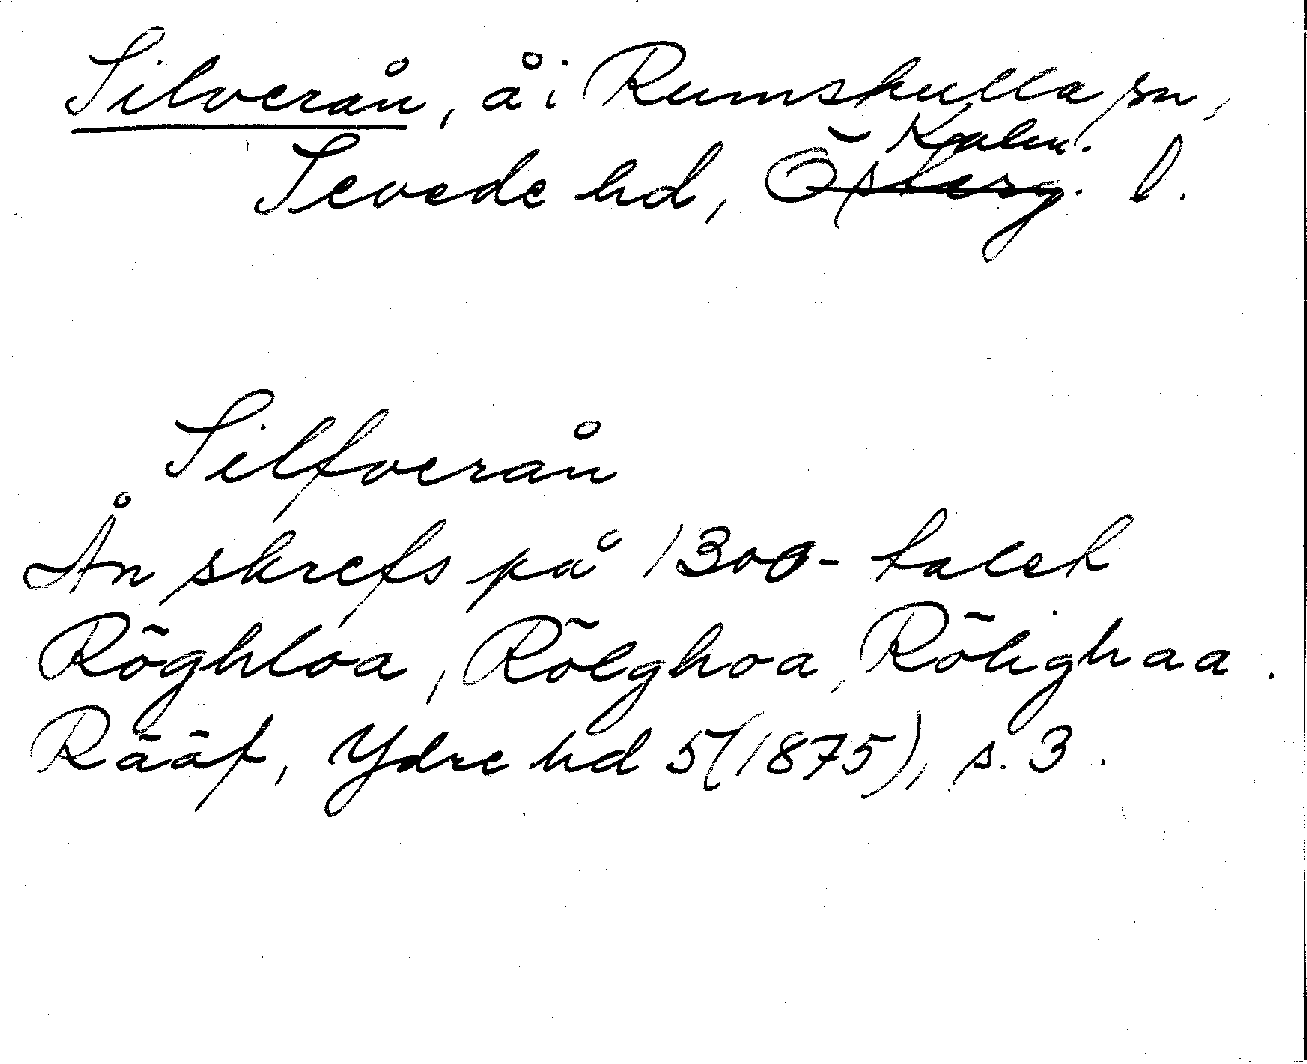 Silverån, å i Rumskulla sn,
Kalm.
Sevede hd, Österg. l.
Silfverån
Ån skrefs på 1300-talet
Röghloa, Röeghoa, Rölighaa.
Rääf, Ydre hd 5 (1875), s. 3.